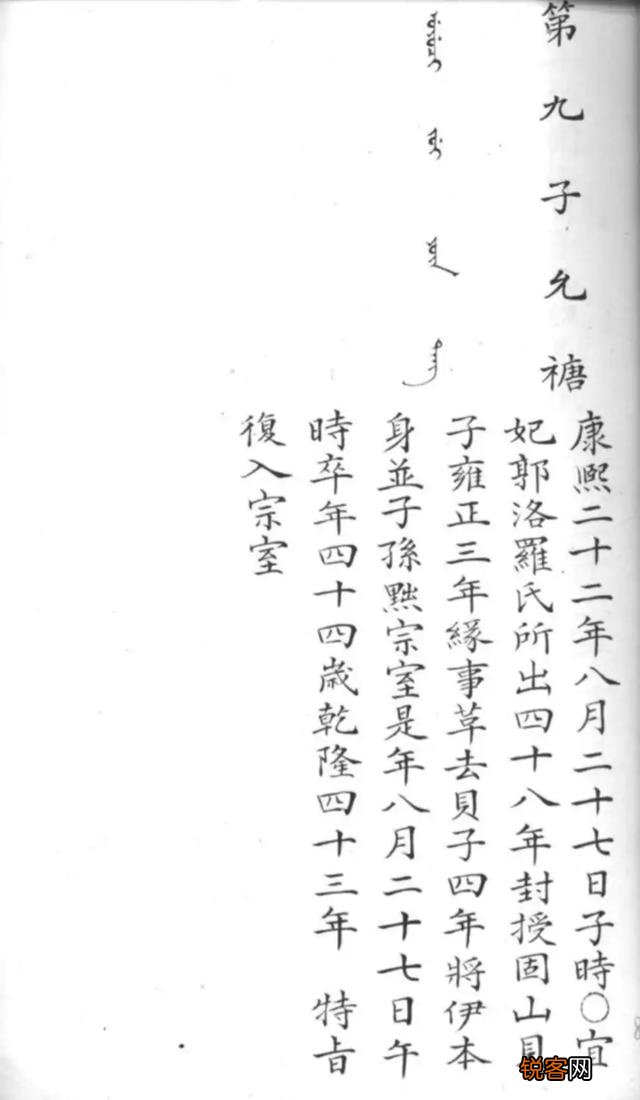 第九子允禟
康熙二十二年八月二十七日子時○宜
妃郭洛羅氏所出四十八年封授固山貝
子雍正三年緣事革去貝子四年將伊本
身並子孫黜宗室是年八月二十七日午
時卒年四十四歲乾隆四十三年 特旨
復入宗室
锐客网